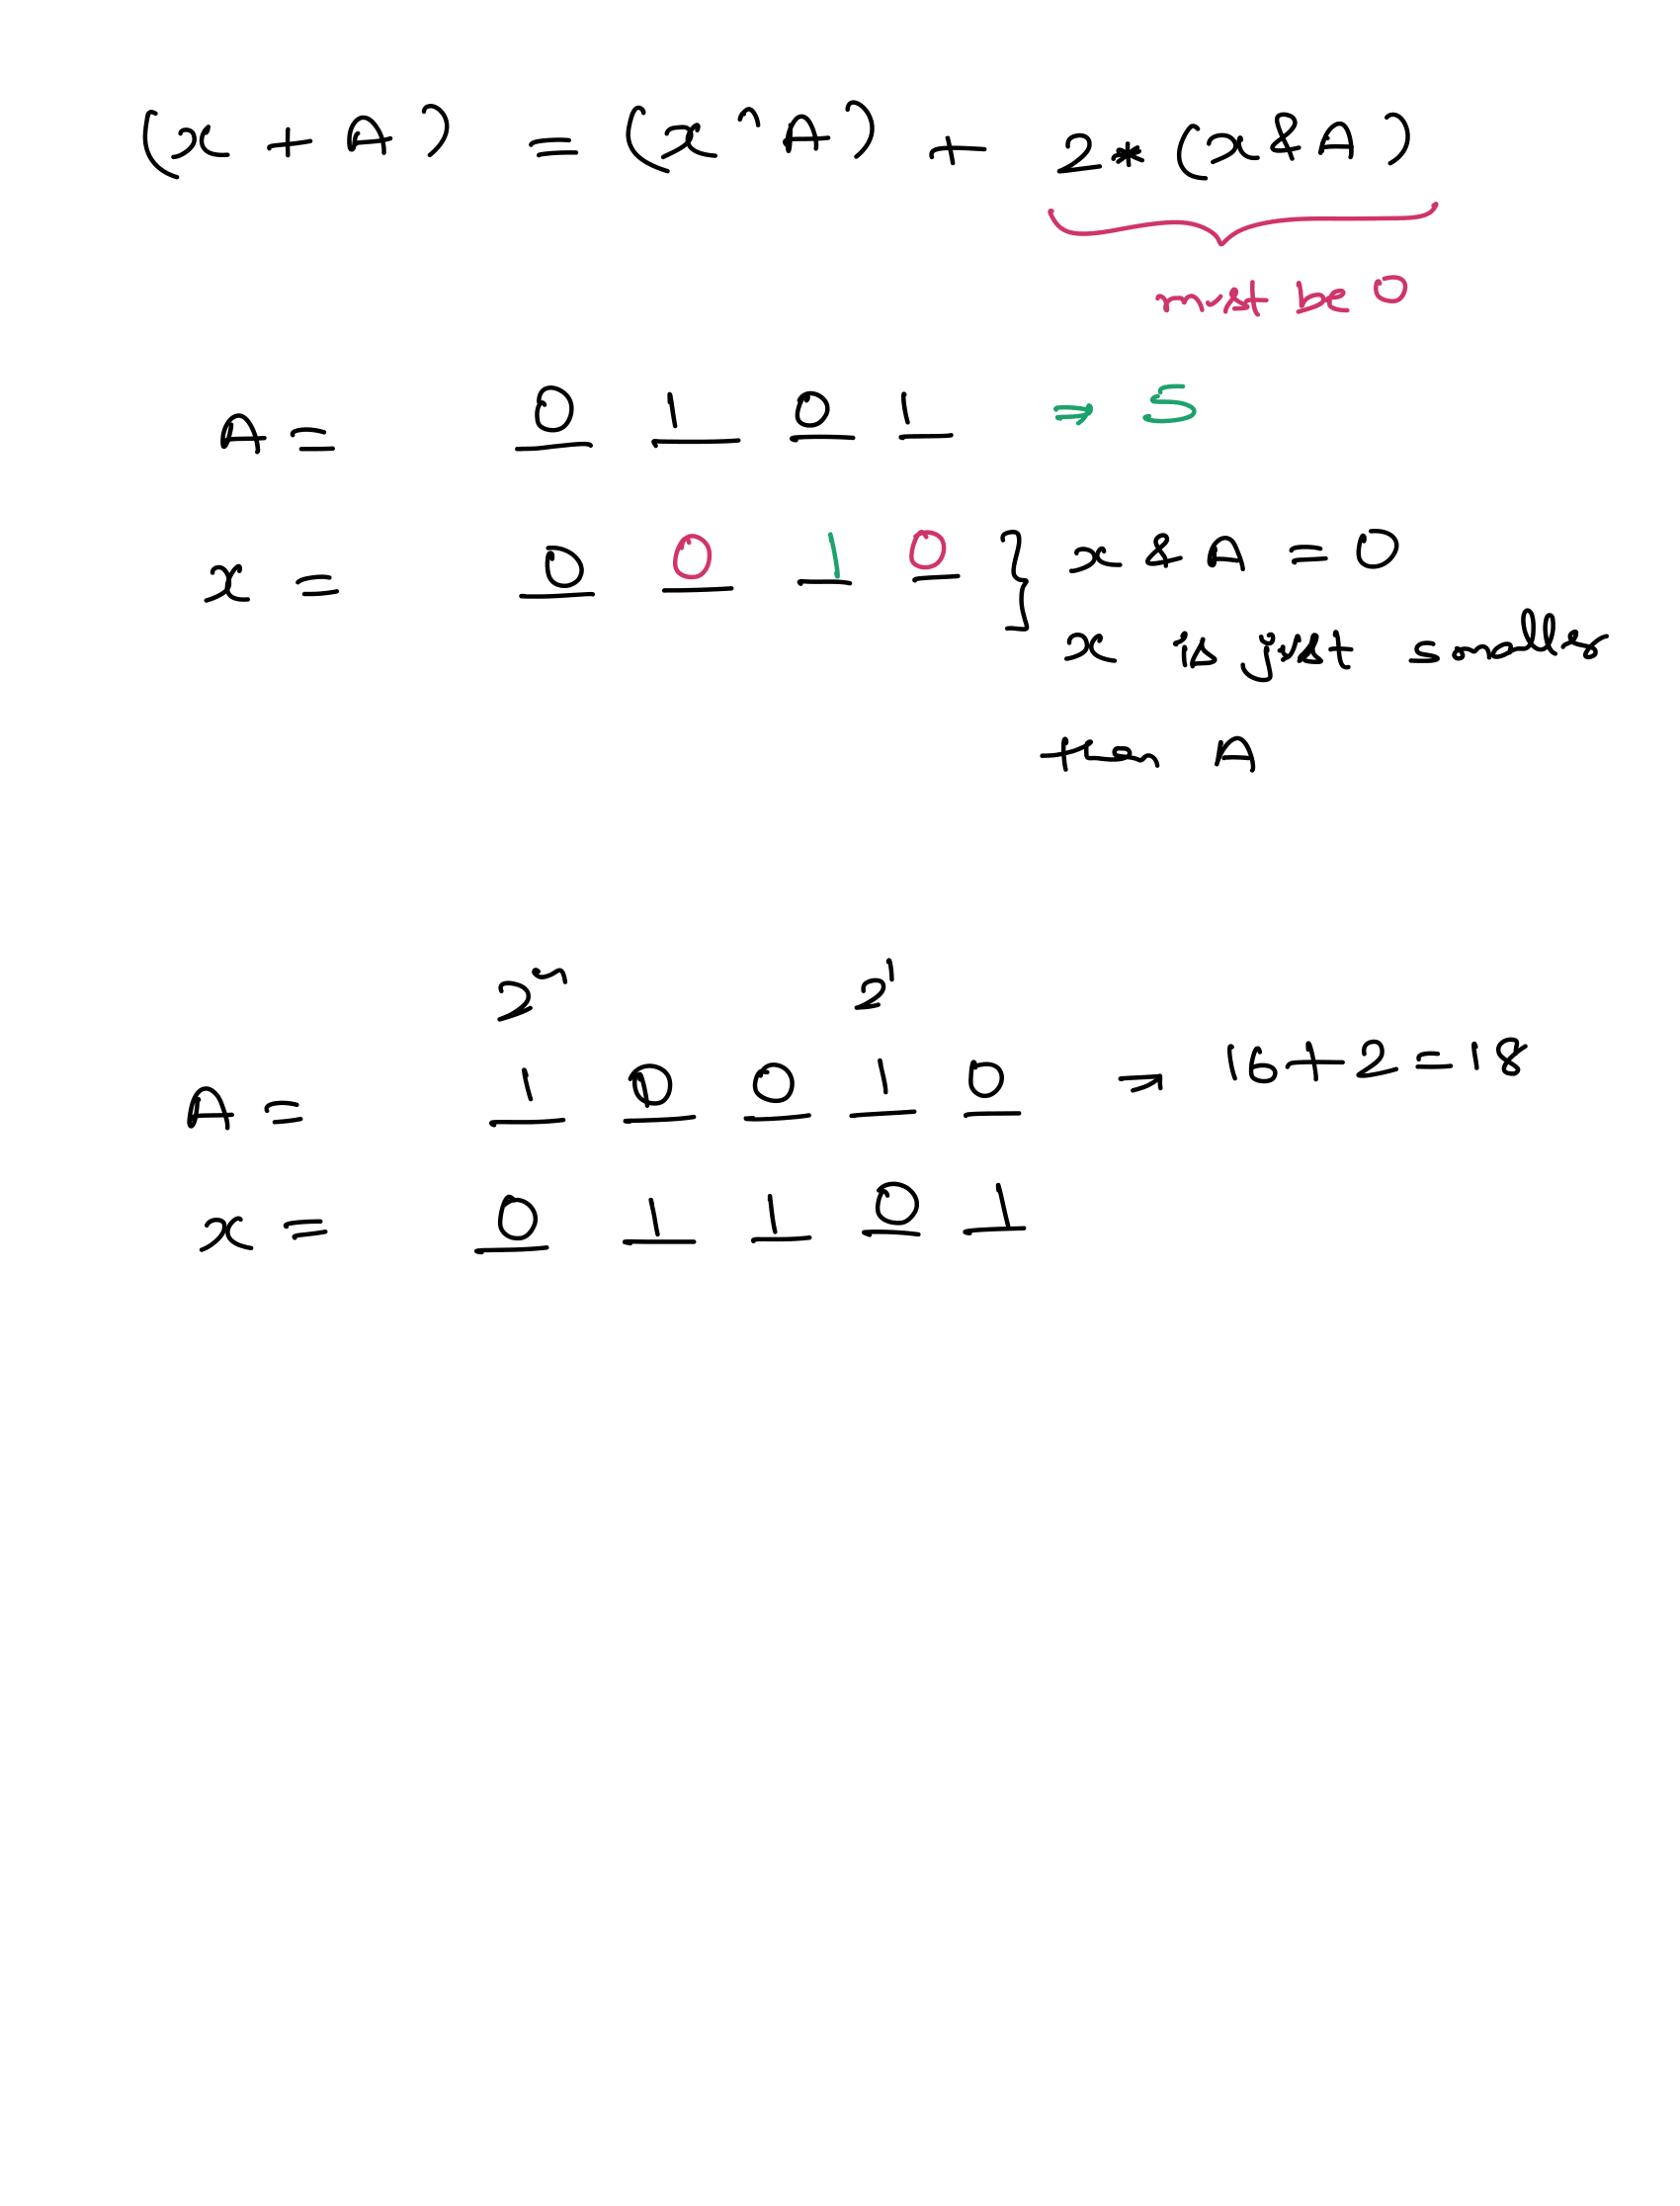 (x + A) = (x ^ A) + 2 * (x & A)
must be 0
A = 0 1 0 1 ⇒ 5
x = 0 0 1 0 } x & A = 0
x is just smaller
than A
2⁴ 2¹
A = 1 0 0 1 0 → 16+2=18
x = 0 1 1 0 1